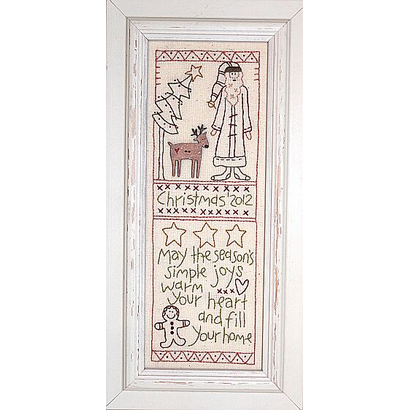 Christmas '2012
May the season's
simple joys
warm
your heart
and fill
your home